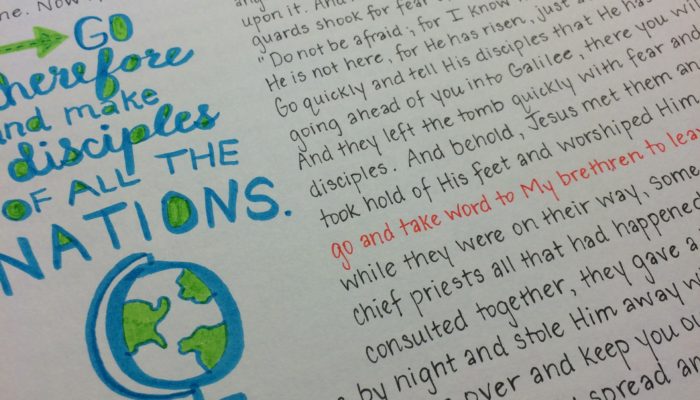 GO
therefore
and make
disciples
OF ALL THE
NATIONS.
upon it. And
guards shook for fear
"Do not be afraid; for I know
He is not here, for He has risen, just
Go quickly and tell His disciples that He has
going ahead of you into Galilee, there you wi
And they left the tomb quickly with fear and
disciples. And behold, Jesus met them an
took hold of His feet and worshiped Him
go and take word to My brethren to lea
while they were on their way, some
chief priests all that had happened
consulted together, they gave a
by night and stole Him away w
over and keep you o
spread an